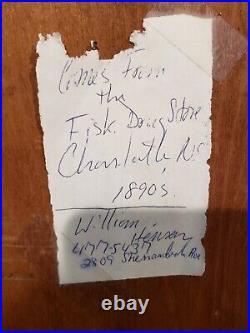 Comes From
the
Fisk Drug Store
Charlotte N.C
1890s.
William
Henson
477-5437
2809 Shenandoah Ave